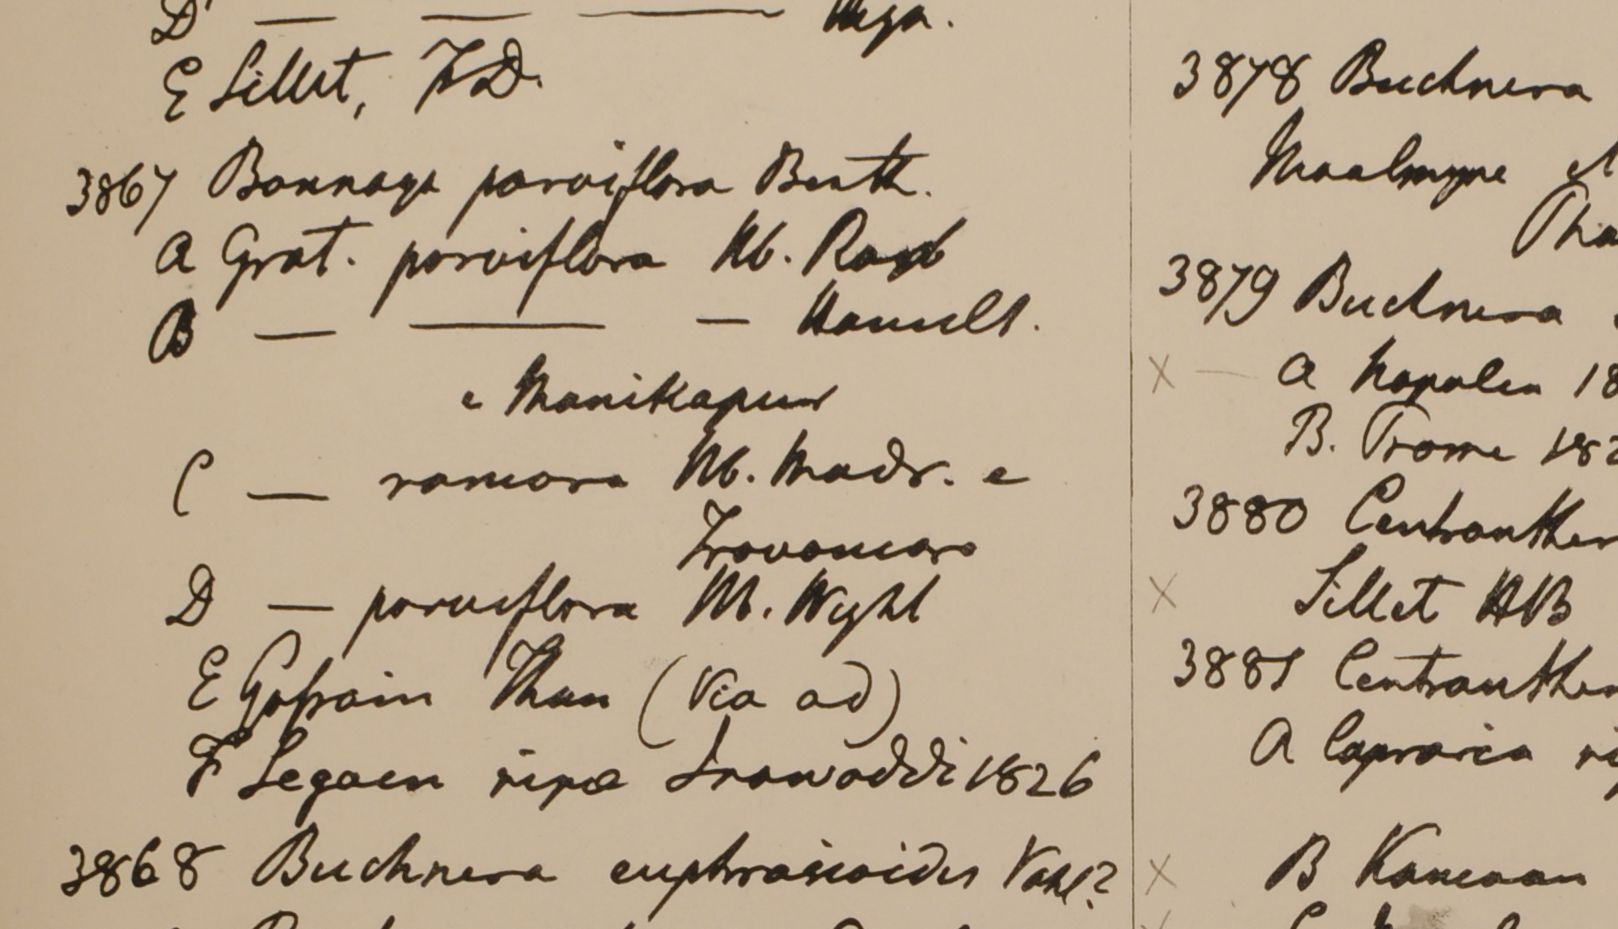 D — — — Hyn.
E Sillet, F.D.
3867 Bonnaya parviflora Benth.
A Grat. parviflora Hb. Roxb
B — — — Hamilt.
e Manikapur
C — ramosa Hb. Madr. e
Travancore
D — parviflora Hb. Wight
E Gofrain Thun (Via ad)
F Segaen ripæ Irawaddi 1826
3868 Buchnera euphrasioides Vahl?
3878 Buchnera
Moalmyne
3879 Buchnera
× — A Napalea 18
B. Prome 182
3880 Centranther
× Sillet HB
3881 Centranther
A Capraria
× B Kamaon